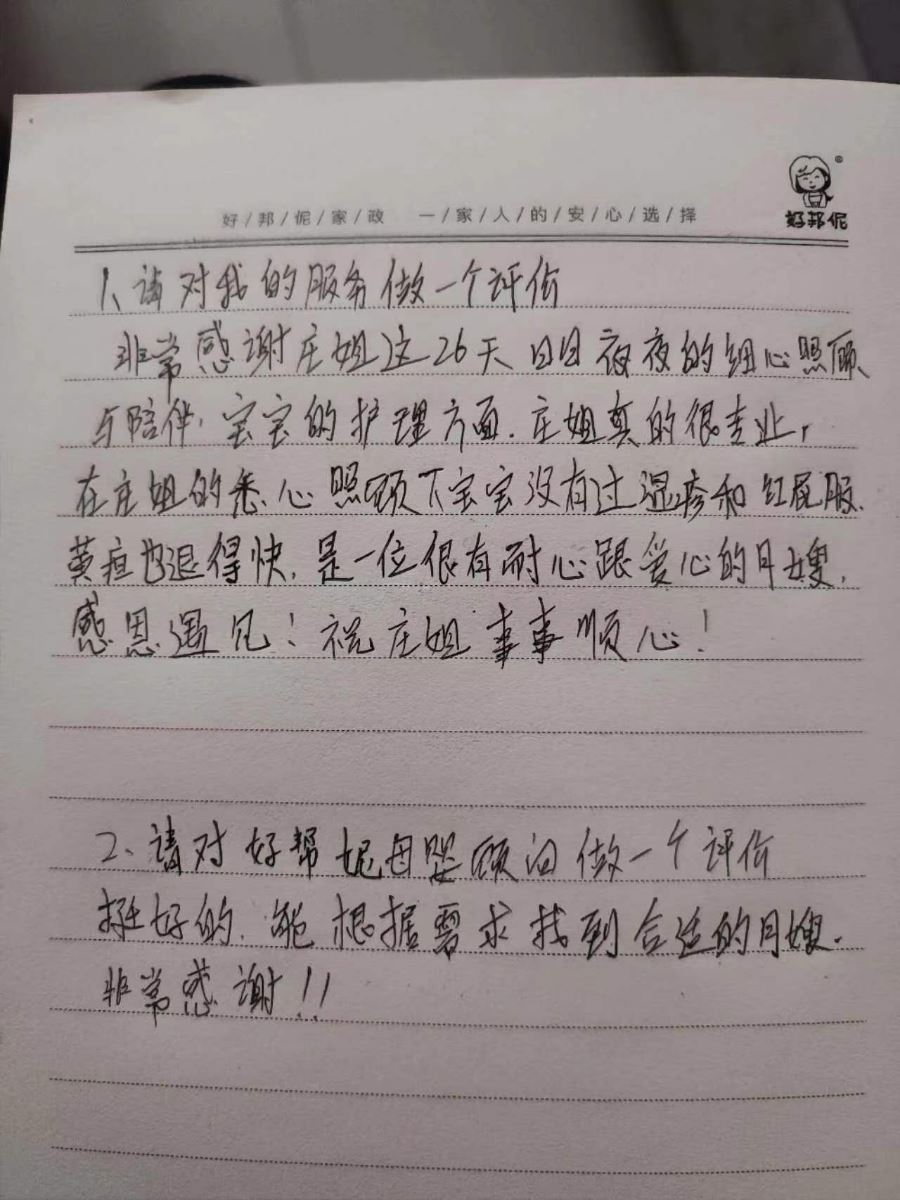 好/邦/伲/家/政 一/家/人/的/安/心/选/择
好邦伲
1、请对我的服务做一个评价
非常感谢庄姐这26天日日夜夜的细心照顾
与陪伴,宝宝的护理方面,庄姐真的很专业,
在庄姐的悉心照顾下宝宝没有过湿疹和红屁股.
黄疸也退得快,是一位很有耐心跟爱心的月嫂,
感恩遇见!祝庄姐事事顺心!
2、请对好帮妮母婴顾问做一个评价
挺好的,能根据需求找到合适的月嫂.
非常感谢!!